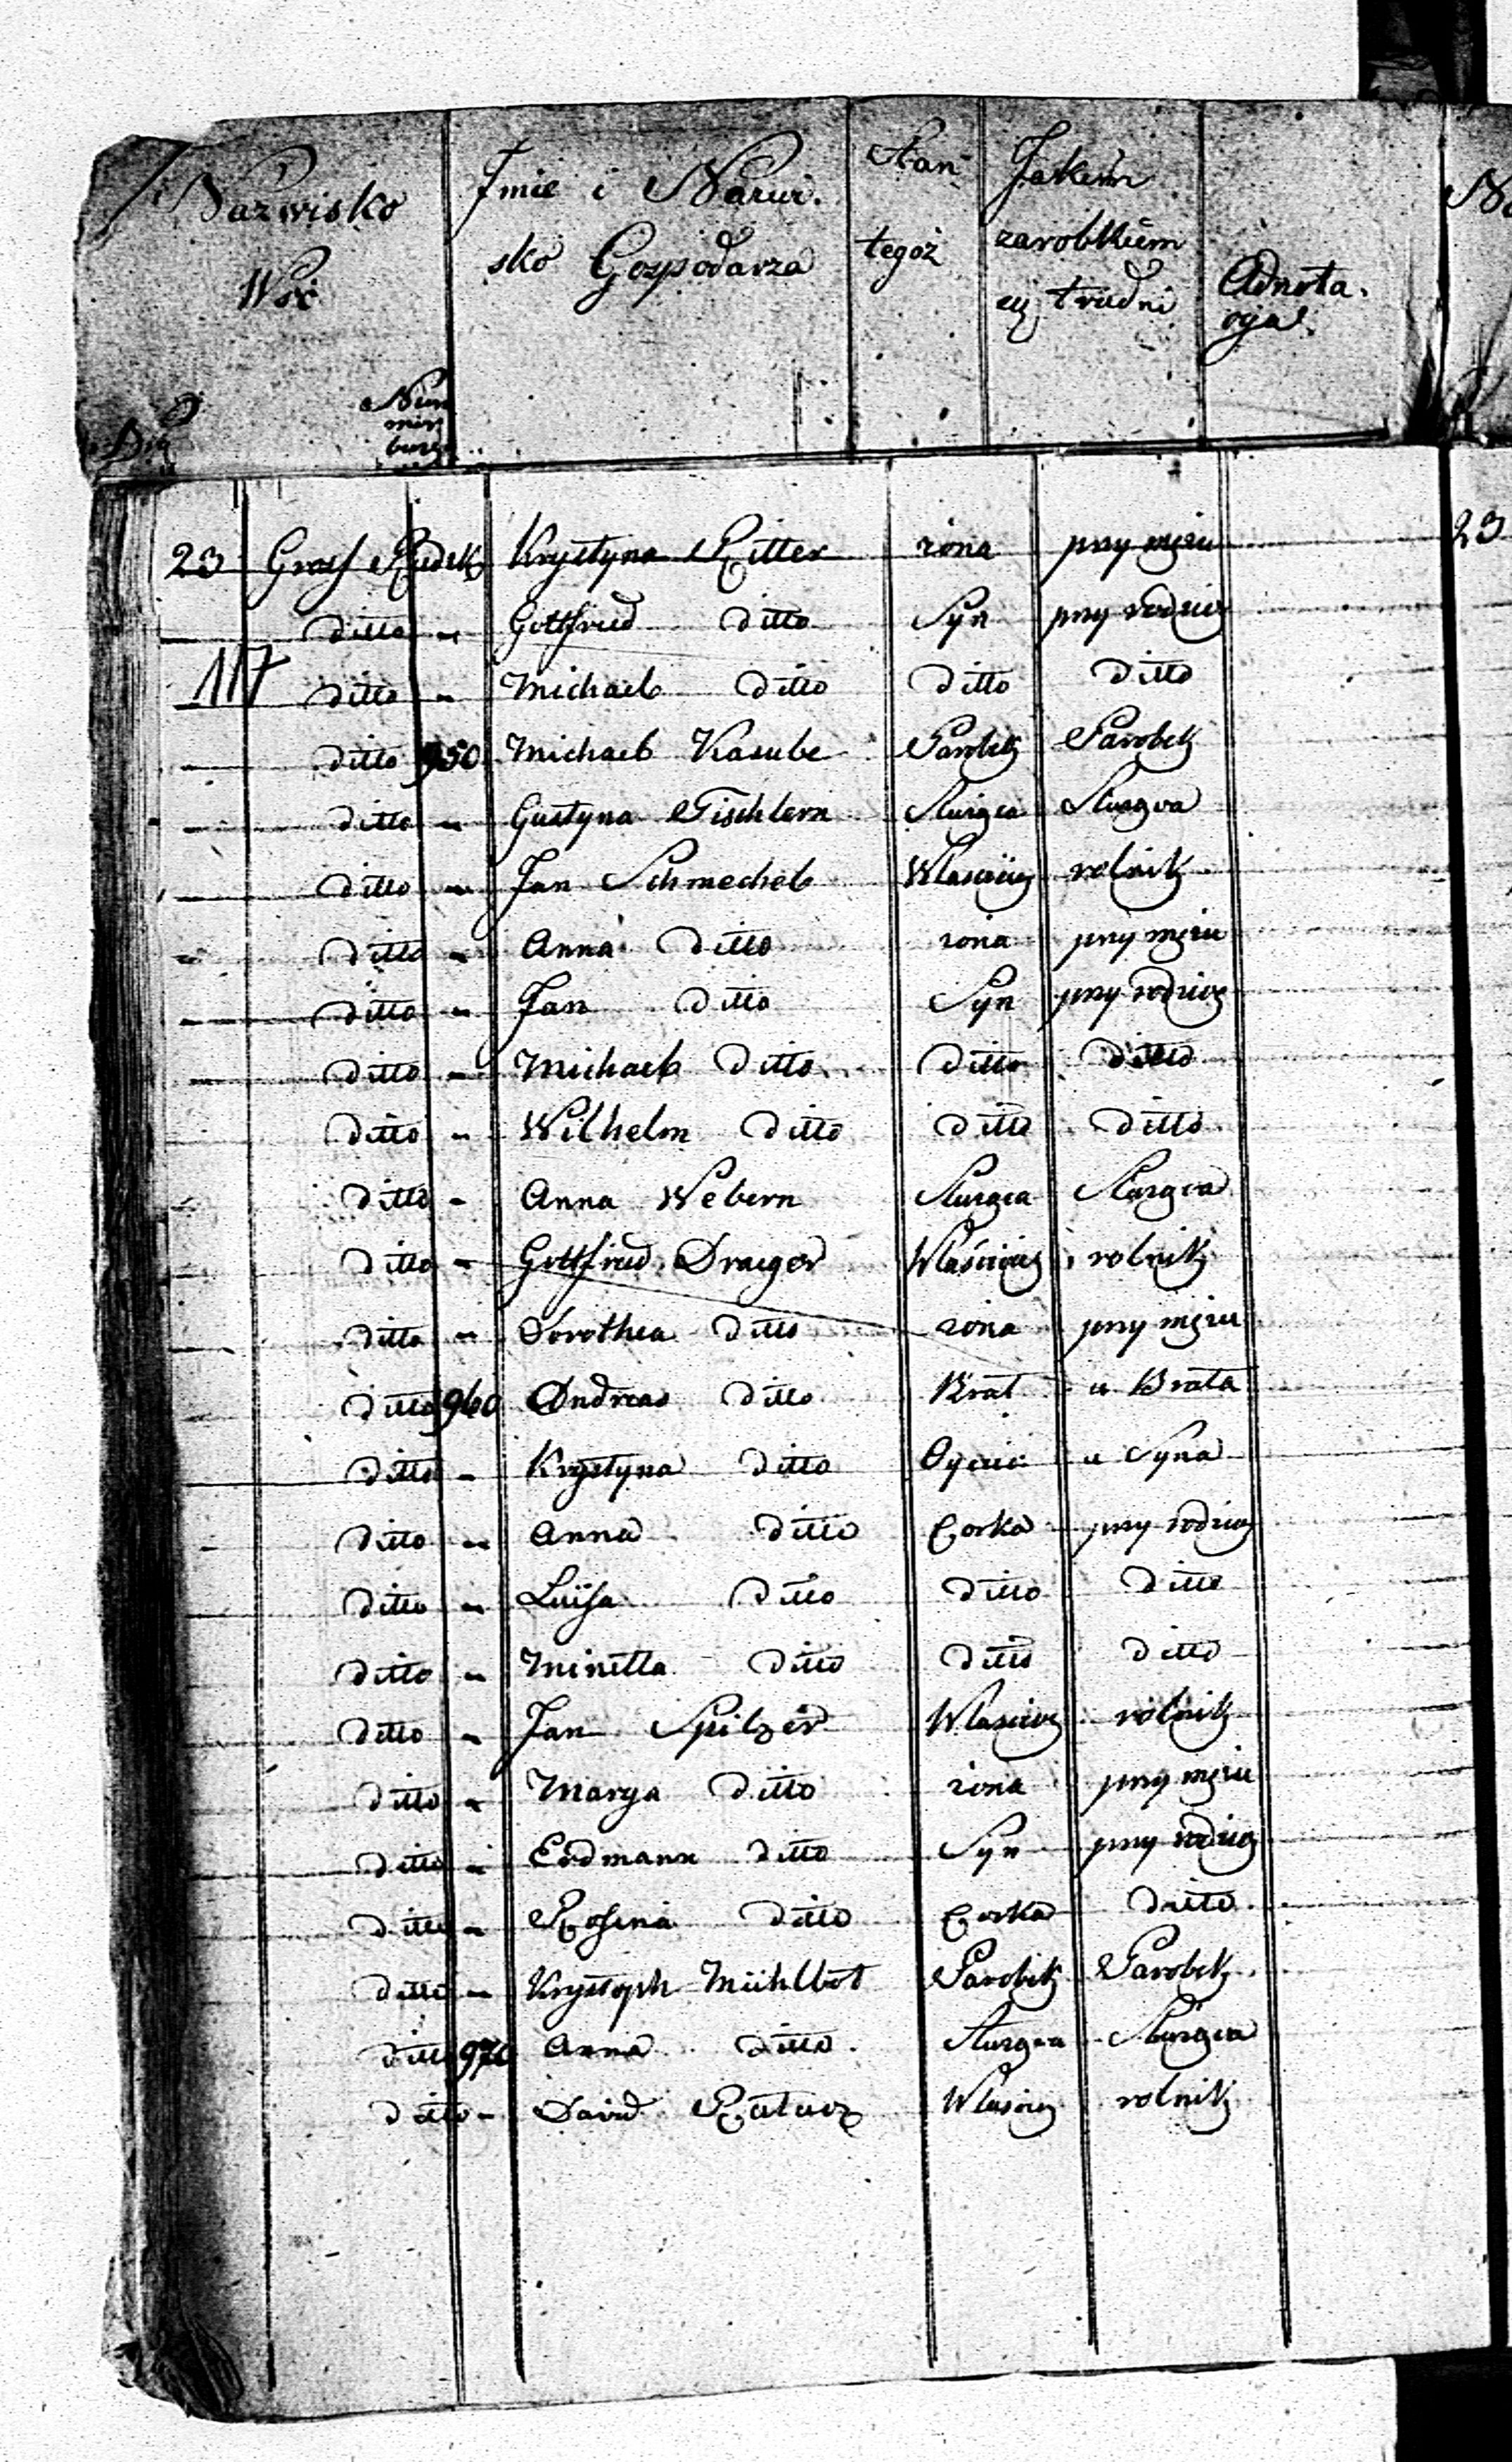 Nazwisko Wsi
Numer burg.
Imie i Nazwisko Gospodarza
Stan tegoż
Jakiem zarobkiem się trudni
Adnotacyia.
23 Gross Rudek Krystyna Ritter żona przy mężu 23
ditto " Gottfried ditto Syn przy rodzica
117 ditto " Michael ditto ditto ditto
ditto 950 Michael Kasube Parobek Parobek
ditto " Gustyna Tischlern Służąca Służąca
ditto " Jan Schmechel Właściciel rolnik
ditto " Anna ditto żona przy mężu
ditto " Jan ditto Syn przy rodzica
ditto " Michael ditto ditto ditto
ditto " Wilhelm ditto ditto ditto
ditto " Anna Webern Służąca Służąca
ditto " Gottfried Draeger Właściciel rolnik
ditto " Dorothea ditto żona przy mężu
ditto 960 Andreas ditto Brat u Brata
ditto " Krystyna ditto Oyciec u Syna
ditto " Anna ditto Corka przy rodzica
ditto " Luisa ditto ditto ditto
ditto " Minetta ditto ditto ditto
ditto " Jan Spitzer Właściciel rolnik
ditto " Marya ditto żona przy mężu
ditto " Erdmann ditto Syn przy rodzica
ditto " Rosina ditto Corka ditto
ditto " Krystoph Mühlbot Parobek Parobek
ditto 970 Anna ditto Służąca Służąca
ditto " David Właściciel rolnik